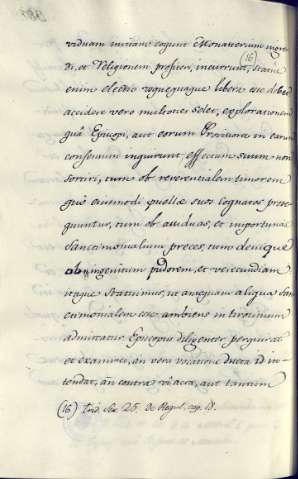 viduam invitam cogunt Monasterium ingre-
di, et Religionem profiteri, incurrunt, statim
enim electio usquequaque libera esse debet
accidere vero multoties solet, explorationem
quâ Episcopi, aut eorum Provicarii in earum
consensum inquirunt, effectum suum non
sortiri, tum ob reverentialem timorem
quô eiusmodi puellæ suos cognatos prose-
quuntur, tum ob assiduas, et importunas
Sanctimonialium preces, tum denique
ob ingenitum pudorem, et verecundiam
itaque statuimus, ut antequam aliqua San-
ctimonialem esse ambiens in tirocinium
admittatur Episcopus diligenter perquirat
et examinet, an vera vocatione ducta id in-
tendat, an contra vi acta, aut tantum
(16)
(16) Trid. Sess. 25. de Regul. cap. 18.